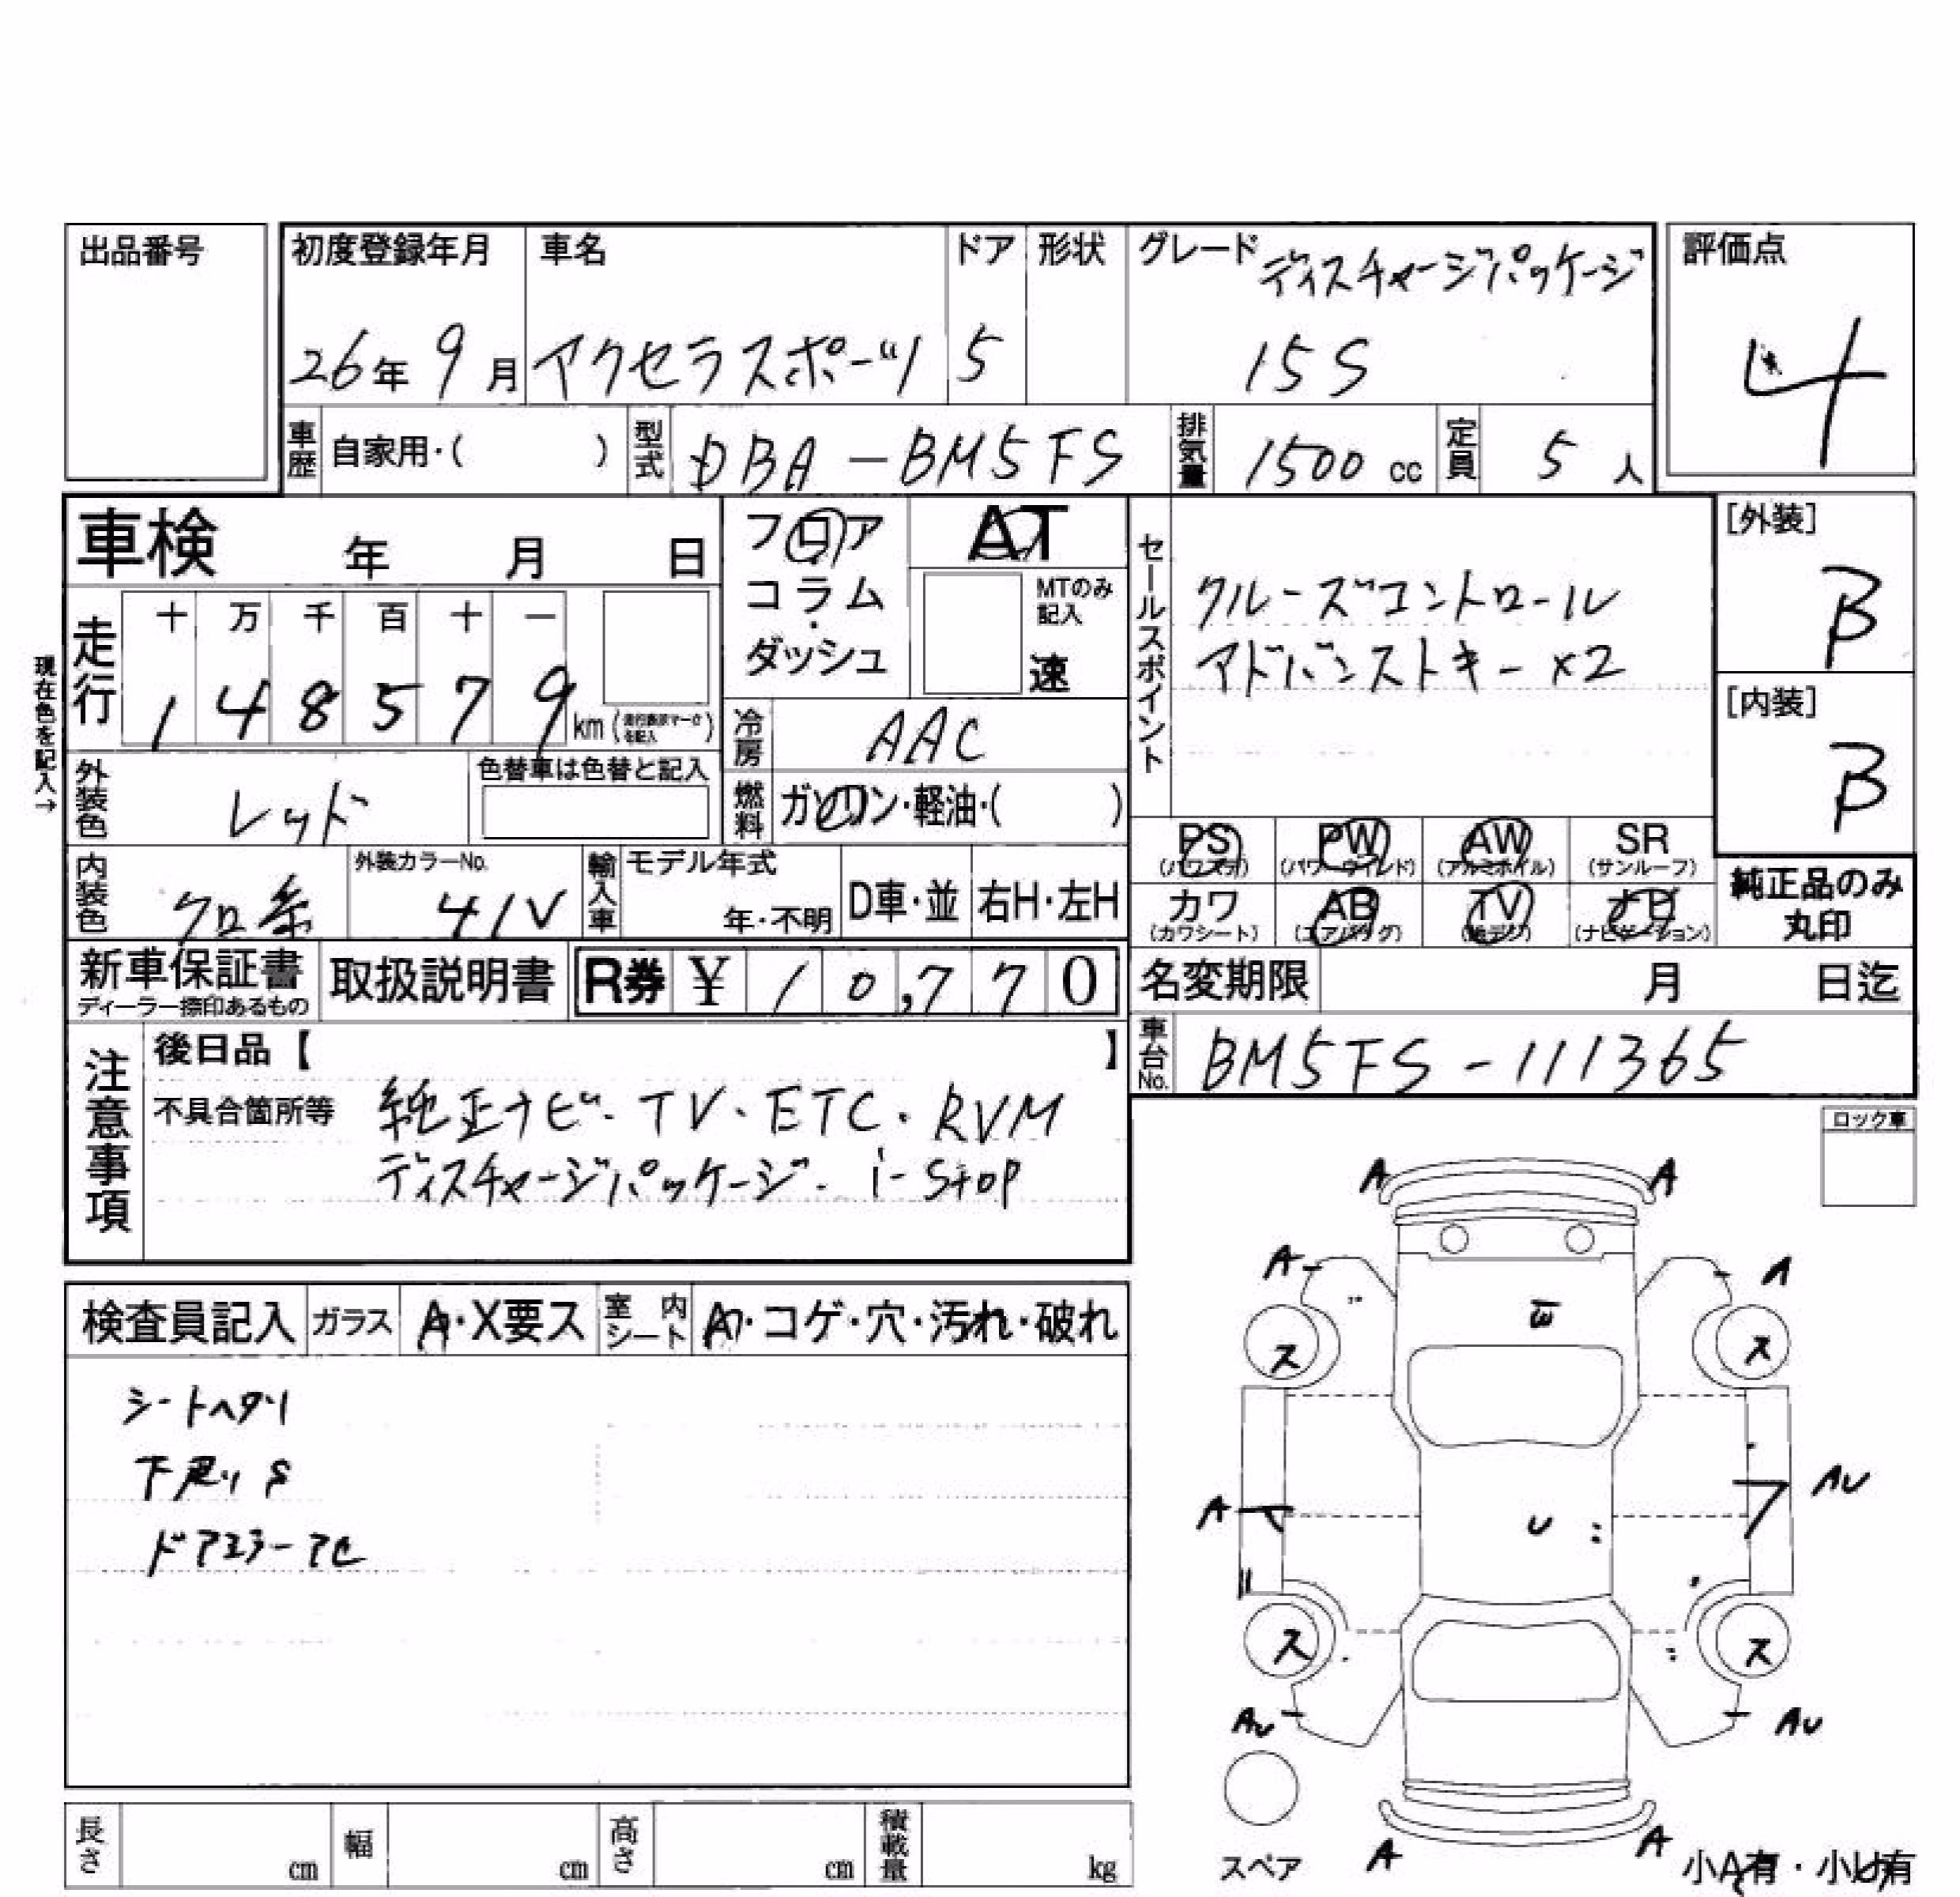 出品番号
初度登録年月 車名 ドア 形状 グレード ディスチャージパッケージ 評価点
26年 9月 アクセラスポーツ 5 15S 4
車歴 自家用・( ) 型式 DBA-BM5FS 排気量 1500 cc 定員 5 人
車検 年 月 日
フロア AT
コラム・
ダッシュ
MTのみ記入
速
セールスポイント
クルーズコントロール
アドバンストキー×2
[外装]
B
[内装]
B
現在色を記入→
走行 十 万 千 百 十 一
1 4 8 5 7 9 km
冷房 AAC
外装色 レッド 色替車は色替と記入
燃料 ガソリン・軽油・( )
PS PW AW SR
(パワステ) (パワーウィンド) (アルミホイル) (サンルーフ)
カワ AB TV ナビ
(カワシート) (エアバッグ) (地デジ) (ナビゲーション)
純正品のみ
丸印
内装色 クロ系 外装カラーNo. 41V 輸入車 モデル年式 年・不明 D車・並 右H・左H
新車保証書 取扱説明書 R券 ¥ 10,770
ディーラー捺印あるもの
名変期限 月 日迄
車台No. BM5FS-111365
注意事項
後日品【 】
不具合箇所等 純正ナビ・TV・ETC・RVM
ディスチャージパッケージ・i-stop
ロック車
検査員記入 ガラス A・X要ス 室内シート A・コゲ・穴・汚れ・破れ
シートヘタリ
下廻りS
ドアミラーアセ
A A
A A
E
ス ス
A U AU
ス ス
AU AU
スペア A A 小A有・小U有
長さ cm 幅 cm 高さ cm 積載量 kg